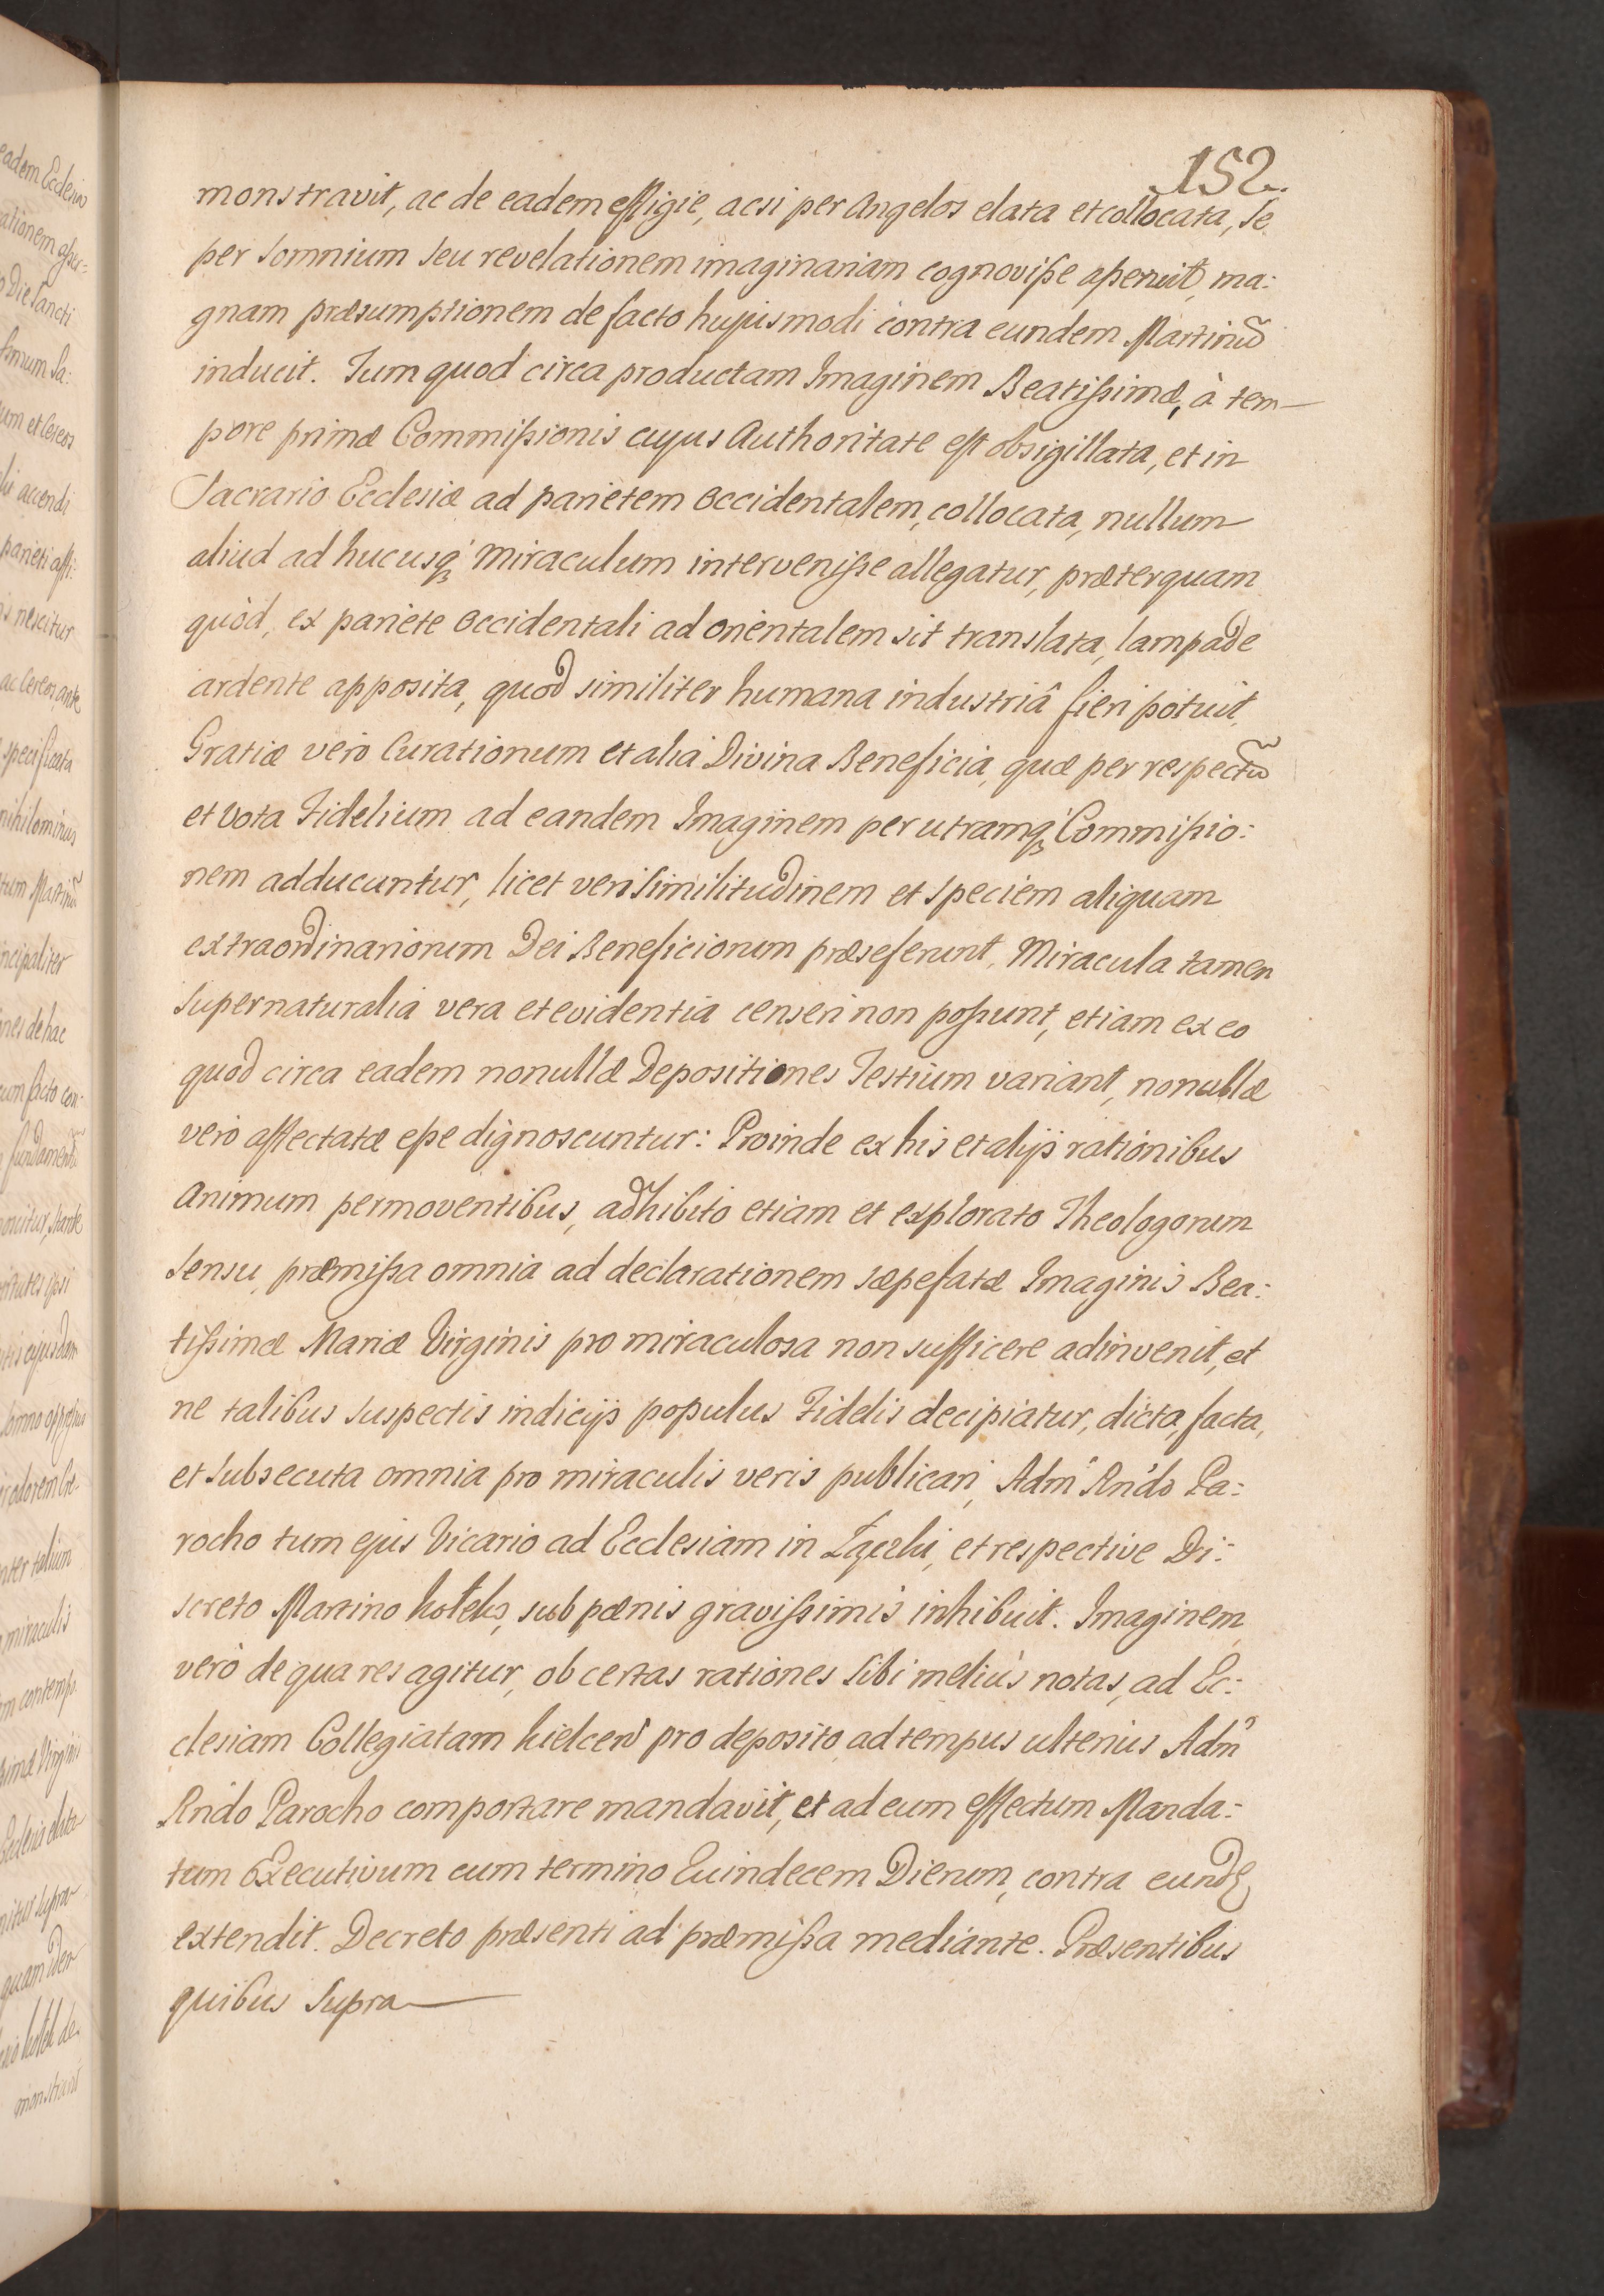 152.
monstravit, ac de eadem effigie, acsi per Angelos elata et collocata, Se
per Somnium Seu revelationem imaginariam cognoviße aperuit, ma:
gnam præsumptionem de facto hujusmodi contra eundem Martinũ
inducit. Tum quod circa productam Imaginem Beatißimæ, à tem-
pore primæ Commißionis cujus Authoritate est obsigillata, et in
Sacrario Ecclesiæ ad parietem Occidentalem, collocata, nullum
aliud ad hucusq́ Miraculum interveniße allegatur, præterquam
quòd, ex pariete Occidentali ad orientalem sit translata, lampade
ardente apposita, quod similiter humana industriâ fieri potuit,
Gratiæ verò Curationum et alia Divina Beneficia, quæ per respectũ
et Vota Fidelium ad eandem Imaginem per utramq́ Commißio:
nem adducuntur, licet veriSimilitudinem et Speciem aliquam
extraordinariorum Dei Beneficiorum præseferunt, Miracula tamen
Supernaturalia vera et evidentia censeri non poßunt, etiam ex eo
quod circa eadem nonullæ Depositiones Testium variant, nonullæ
verò affectatæ eße dignoscuntur: Proinde ex his et alijs rationibus
Animum permoventibus, adhibito etiam et explorato Theologorum
Sensu, præmißa omnia ad declarationem sæpefatæ Imaginis Bea:
tißimæ Mariæ Virginis pro miraculosa non sufficere adinvenit, et
ne talibus Suspectis indicijs populus Fidelis decipiatur, dicta, facta,
et Subsecuta omnia pro miraculis veris publicari, Adm̃ Rńdo Pa:
rocho tum ejus Vicario ad Ecclesiam in et respective Di:
screto Martino sub pænis gravißimis inhibuit. Imaginem
verò de qua res agitur, ob certas rationes Sibi meliùs notas, ad Ec:
clesiam Collegiatam pro deposito ad tempus ulterius Adm̃
Rńdo Parocho comportare mandavit, et ad eum effectum Manda:
tum Executivum cum termino Quindecem Dierum, contra eundẽ
extendit. Decreto præsenti ad præmißa mediante. Præsentibus
quibus Supra